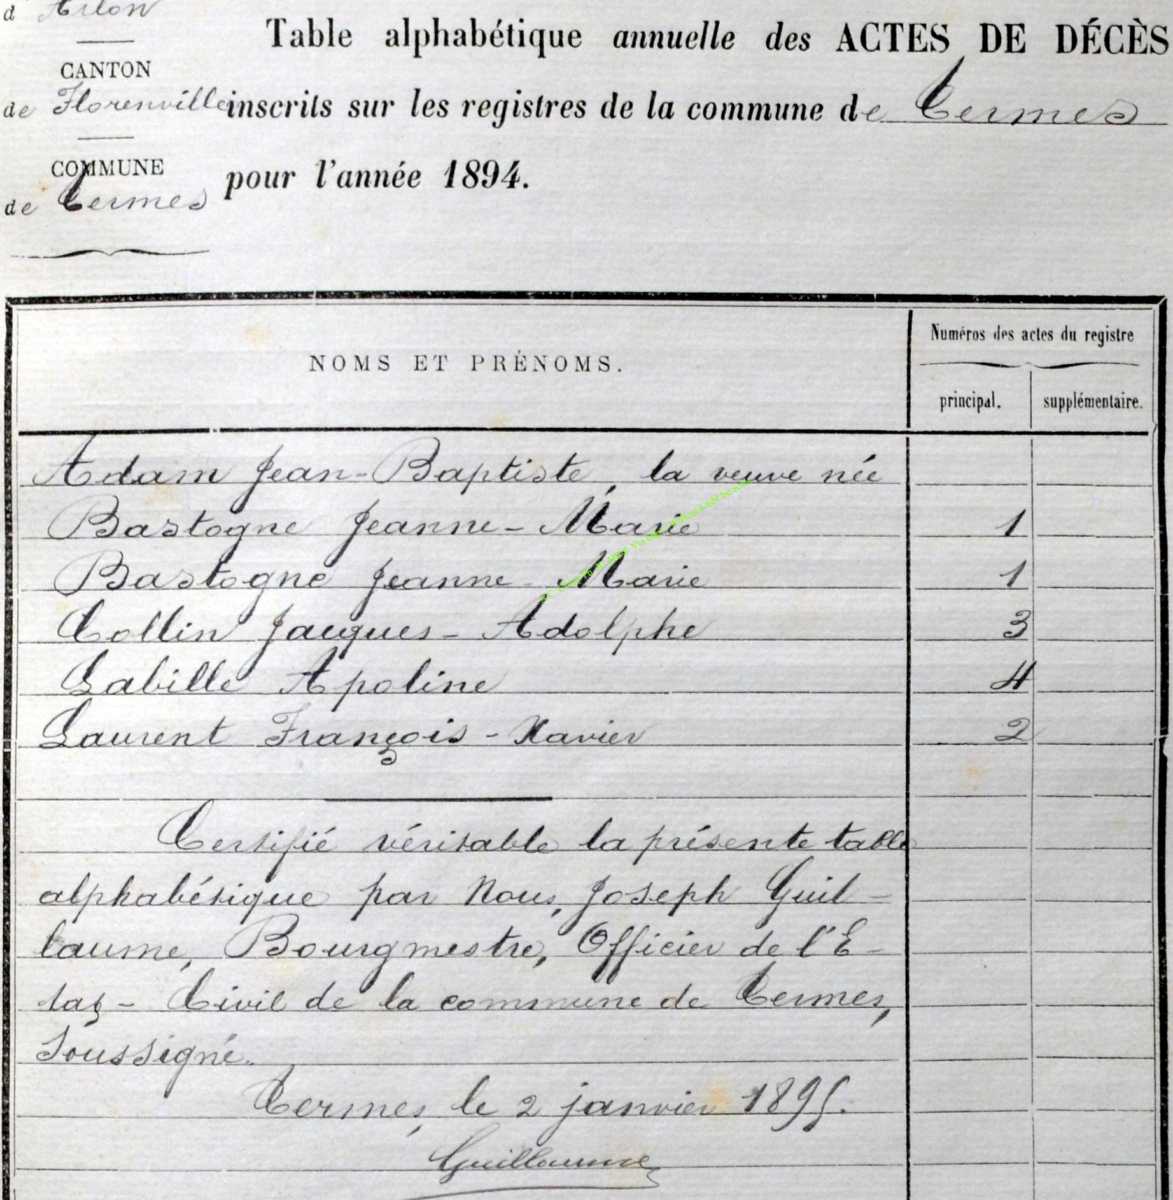 d'Arlon
CANTON
de Florenville
COMMUNE
de Termes
Table alphabétique annuelle des ACTES DE DÉCÈS
inscrits sur les registres de la commune de Termes
pour l'année 1894.
NOMS ET PRÉNOMS.
Numéros des actes du registre
principal. supplémentaire.
Adam Jean-Baptiste, la veuve née
Bastogne Jeanne-Marie 1
Bastogne Jeanne-Marie 1
Collin Jacques-Adolphe 3
Labille Apoline 4
Laurent François-Xavier 2
Certifié véritable la présente table
alphabétique par Nous, Joseph Guil-
laume, Bourgmestre, Officier de l'É-
tat-Civil de la commune de Termes,
Soussigné.
Termes, le 2 janvier 1895.
Guillaume